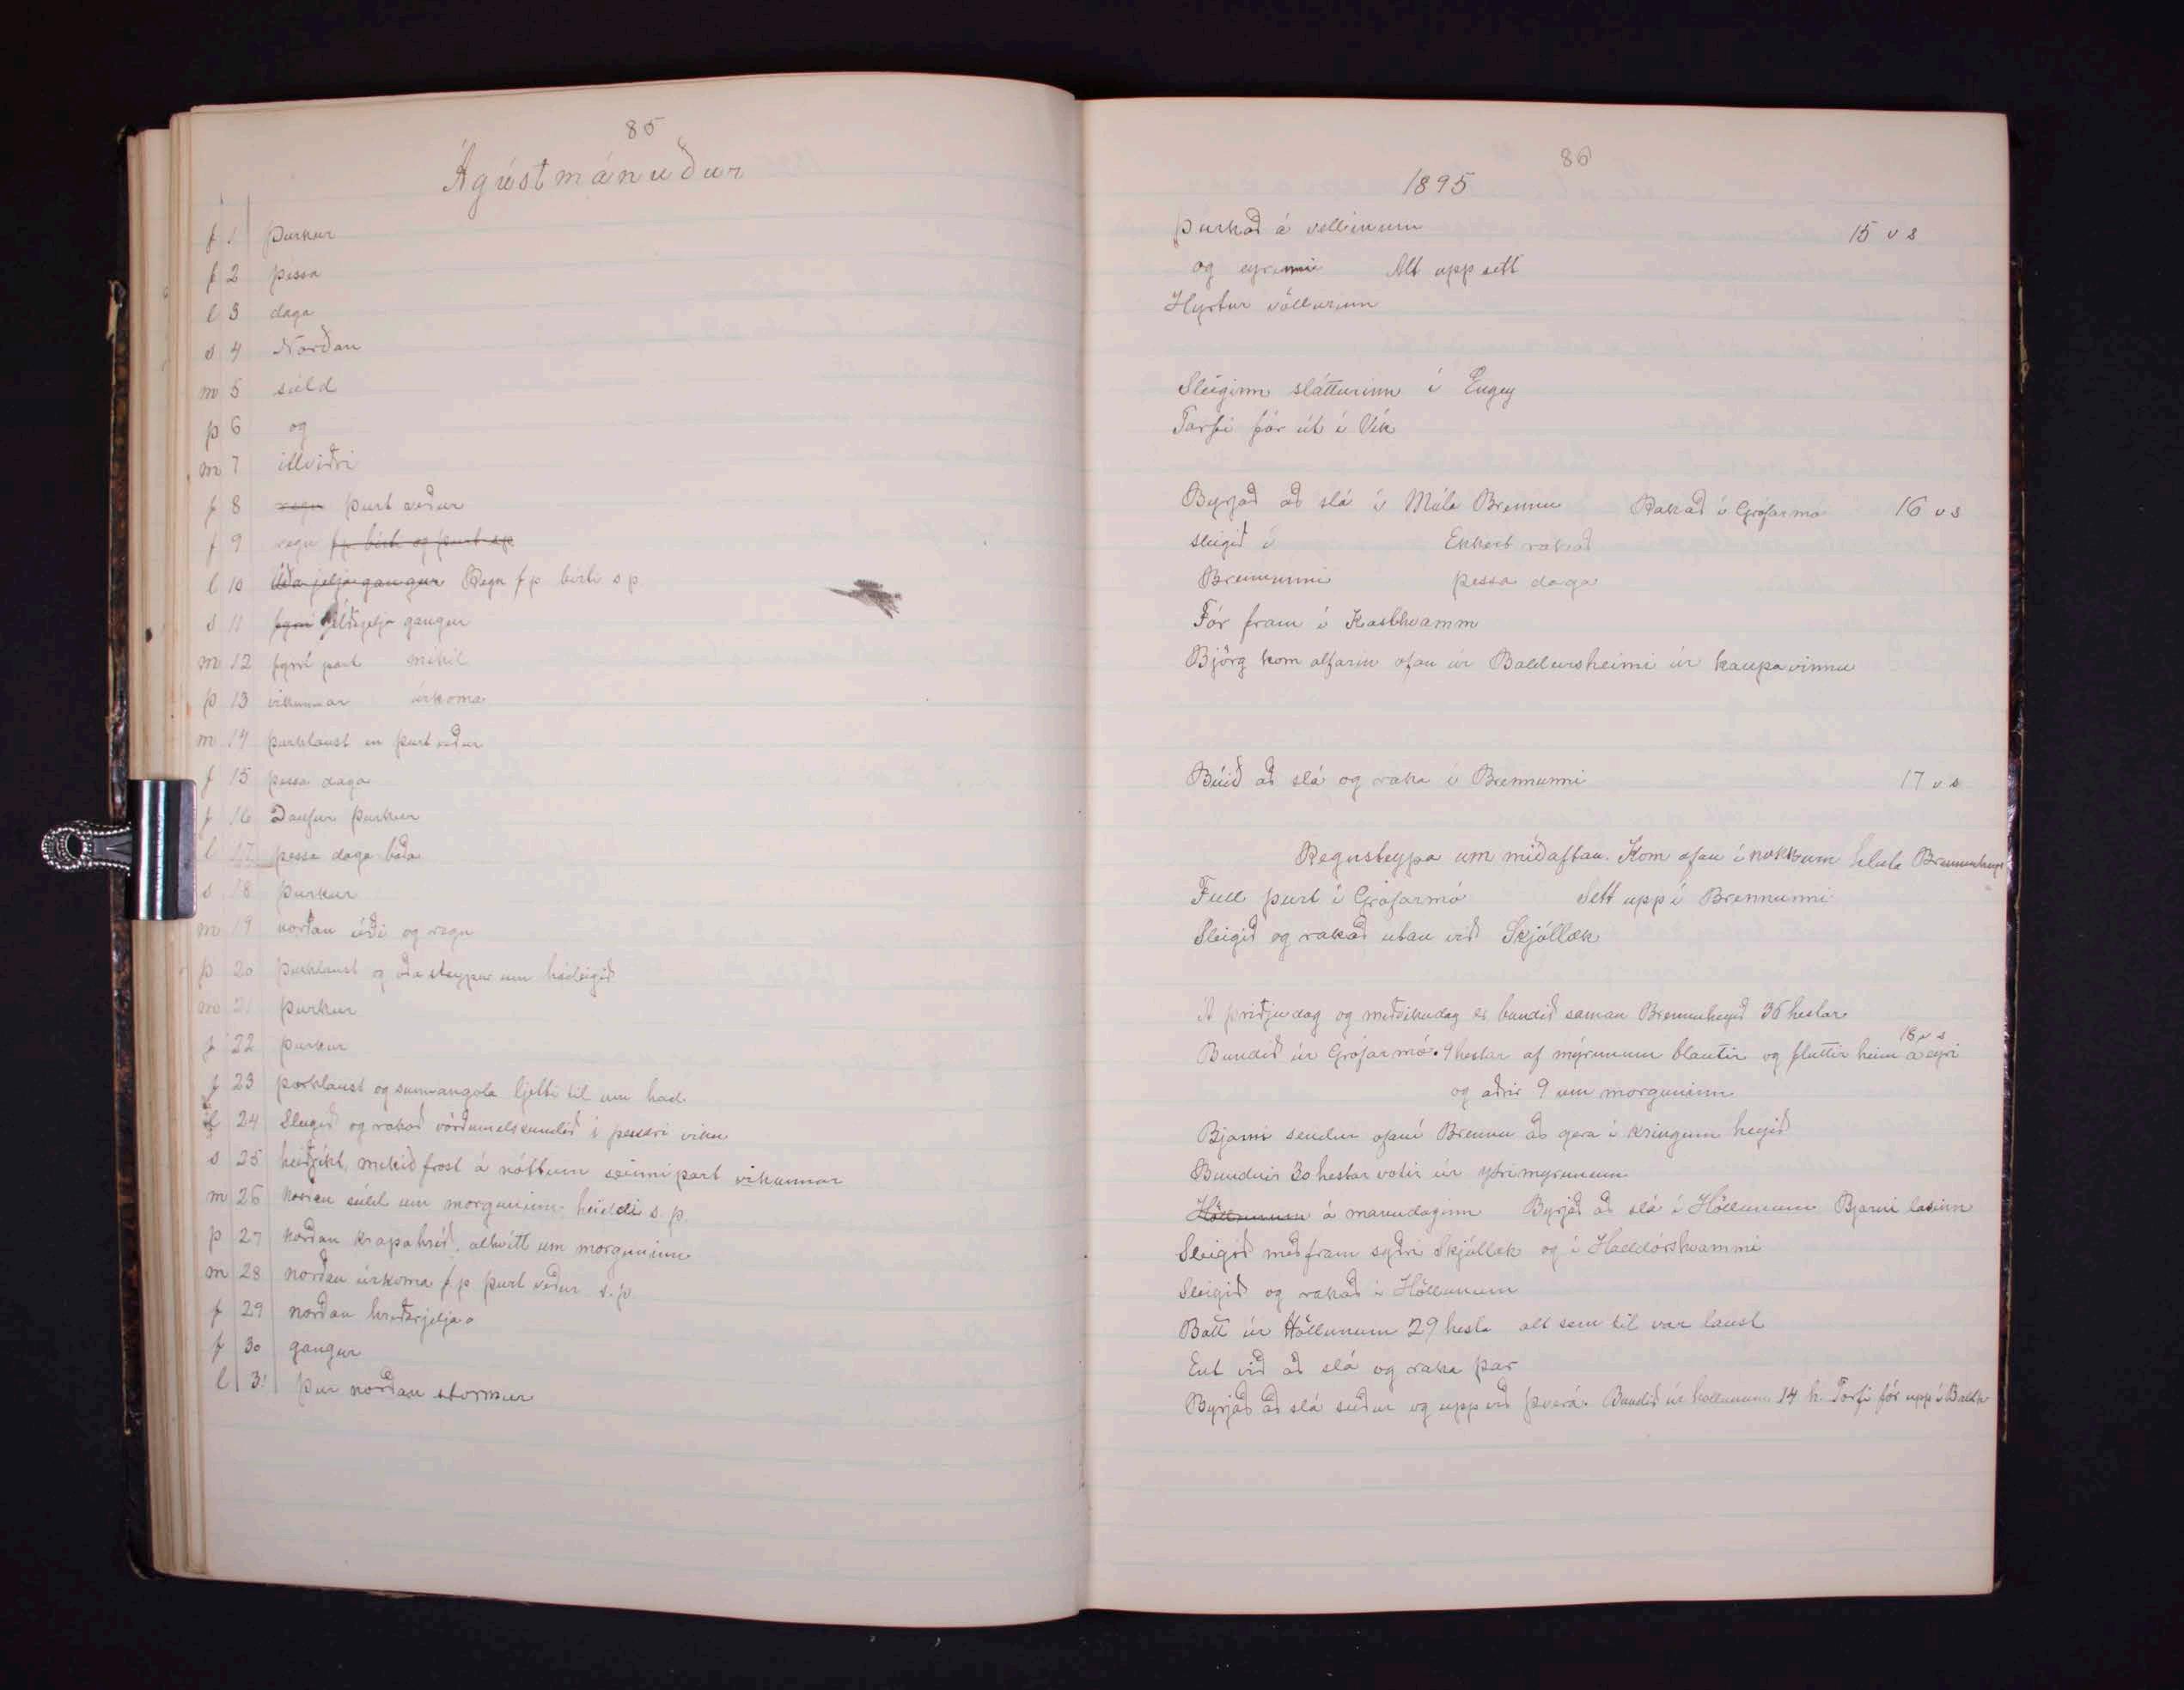 85
Ágústmánuður
f 1 þurkur
f 2 þessa
l 3 daga
s 4 Norðan
m 5 súld
þ 6 og
m 7 illviðri
f 8 regn þurt veður
f 9 regn f p. birti og þurt s p
l 10 Úða jeljagangur Regn f p birti s p
s 11 jelja gangur
m 12 fyrri part mikil
þ 13 vikunnar úrkoma
m 14 þurklaust en þurt veður
f 15 þessa daga
f 16 Daufur þurkur
l 17 þessa daga báða
s 18 þurkur
m 19 norðan úði og regn
þ 20 þurklaust og steypur um hádeigið
m 21 þurkur
f 22 þurkur
f 23 þorklaust og sunnangola ljetti til um hád.
l 24 Sleigið og rakað vörðumelssundið i þessari viku
s 25 heiðríkt, mikið frost á nóttum seinni part vikunnar
m 26 norðan súld um morguninn heiddi s. p.
þ 27 norðan krapahríð, alhvítt um morguninn
m 28 norðan úrkoma f. p þurt veður s. p
f 29 norðan hríðarjelja
f 30 gangur
l 31 þur norðan stormur
86
1895
Þurkað á vellinum 15 v s
og eyrinni Alt upp sett
Hyrtur völlurinn
Sleiginn slátturinn í Engey
Torfi fór út í Vík
Byrjað að slá í Múla Brennu Rakað í Grófarmó 16 v s
sleigið í Ekkert rakað
Brennunni þessa daga
Fór fram í Kasthvamm
Björg kom alfarin ofan úr Baldursheimi úr kaupavinnu
Búið að slá og raka í Brennunni 17 v s
Regnsteypa um miðaftan. Kom ofan í nokkurn hluta
Full þurt í Grófarmó Sett upp í Brennunni
Sleigið og rakað utan við Skjóllæk
Á þriðjudag og miðvikudag er bundið saman Brennuheyið 36 hestar
18 v s
Bundið úr Grófarmó. 9 hestar af mýrunum blautir og fluttir heim á eyri
og aðrir 9 um morguninn
Bjarni sendur ofaní Brennu að gera í kringum heyið
Bundnir 30 hestar votir úr ytrimýrunum
Höllunum á mánudaginn Byrjað að slá í Höllunum Bjarni lasinn
Sleigið meðfram syðri Skjóllæk og í Halldórshvammi
Sleigið og rakað í Höllunum
Batt úr Höllunum 29 hesta alt sem til var laust
Ent við að slá og raka þar
Byrjað að slá suður og upp við þverá. Bundið úr hollunum 14 h. Torfi fór upp í Baldh